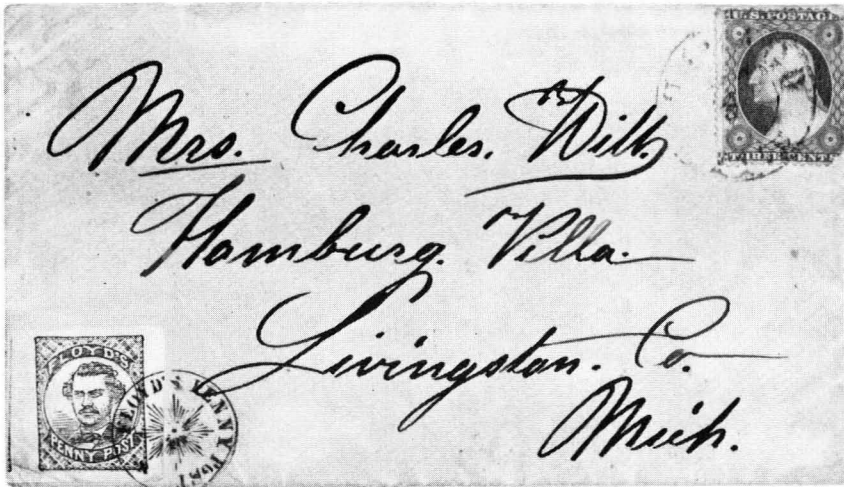 U.S. POSTAGE
THREE CENTS
Mrs. Charles. Will,
Hamburg. Villa.
Livingston. Co.
Mich.
FLOYD'S
PENNY POST
FLOYD'S PENNY POST